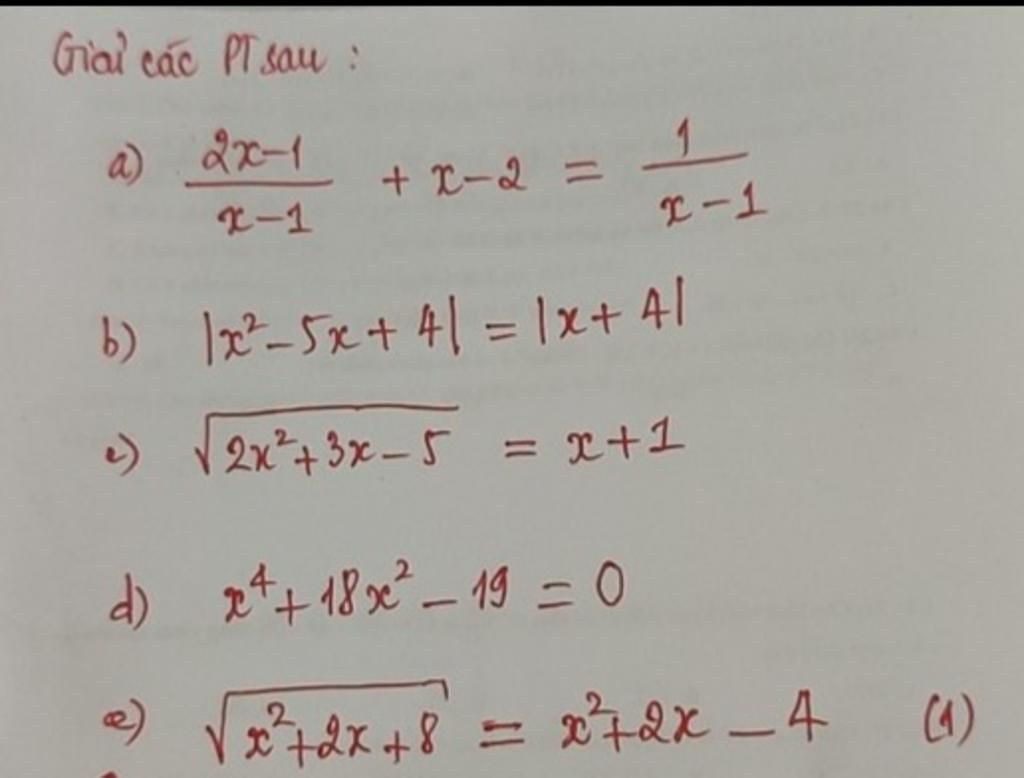 Giải các PT sau :
a) (2x-1)/(x-1) + x-2 = 1/(x-1)
b) |x²-5x+4| = |x+4|
c) √(2x²+3x-5) = x+1
d) x⁴+18x²-19 = 0
e) √(x²+2x+8) = x²+2x-4 (1)